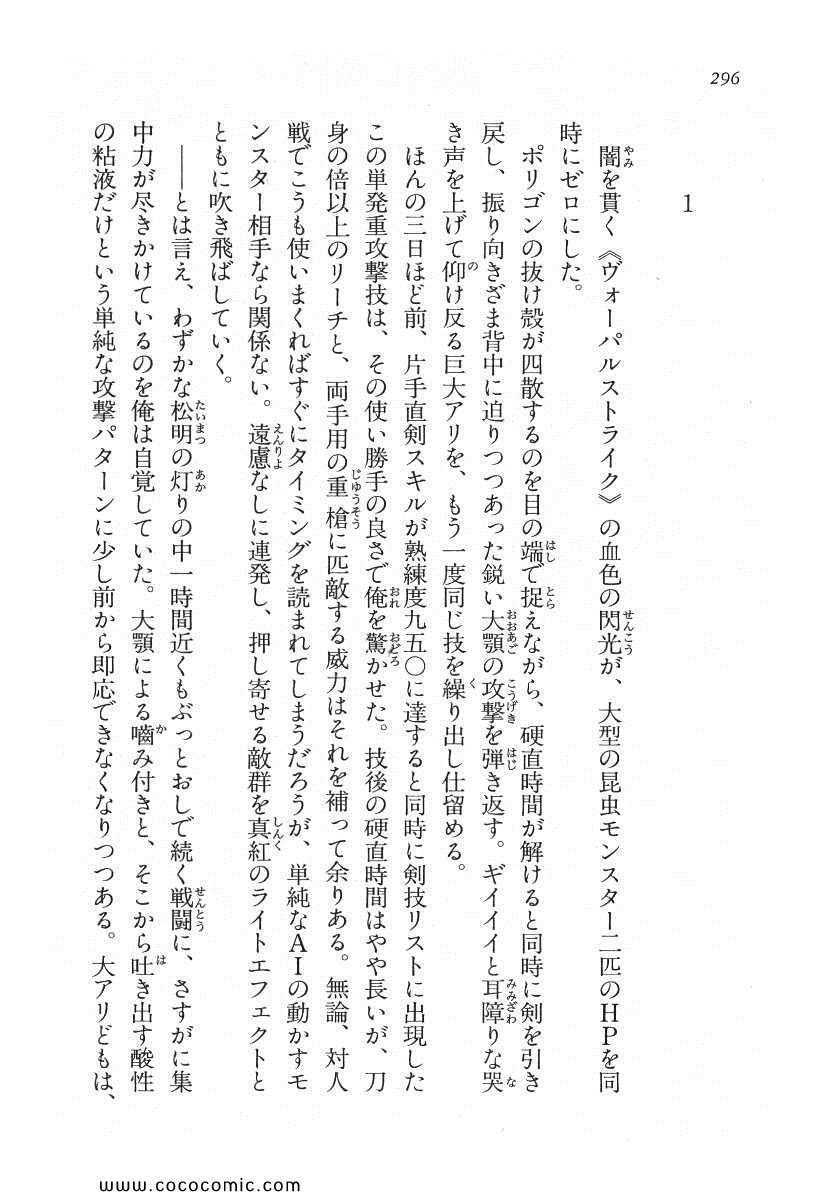 296
1
闇を貫く《ヴォーパルストライク》の血色の閃光が、大型の昆虫モンスター二匹のＨＰを同
時にゼロにした。
ポリゴンの抜け殻が四散するのを目の端で捉えながら、硬直時間が解けると同時に剣を引き
戻し、振り向きざま背中に迫りつつあった鋭い大顎の攻撃を弾き返す。ギイイイと耳障りな哭
き声を上げて仰け反る巨大アリを、もう一度同じ技を繰り出し仕留める。
ほんの三日ほど前、片手直剣スキルが熟練度九五〇に達すると同時に剣技リストに出現した
この単発重攻撃技は、その使い勝手の良さで俺を驚かせた。技後の硬直時間はやや長いが、刀
身の倍以上のリーチと、両手用の重槍に匹敵する威力はそれを補って余りある。無論、対人
戦でこうも使いまくればすぐにタイミングを読まれてしまうだろうが、単純なＡＩの動かすモ
ンスター相手なら関係ない。遠慮なしに連発し、押し寄せる敵群を真紅のライトエフェクトと
ともに吹き飛ばしていく。
――とは言え、わずかな松明の灯りの中一時間近くもぶっとおしで続く戦闘に、さすがに集
中力が尽きかけているのを俺は自覚していた。大顎による嚙み付きと、そこから吐き出す酸性
の粘液だけという単純な攻撃パターンに少し前から即応できなくなりつつある。大アリどもは、
www.cococomic.com